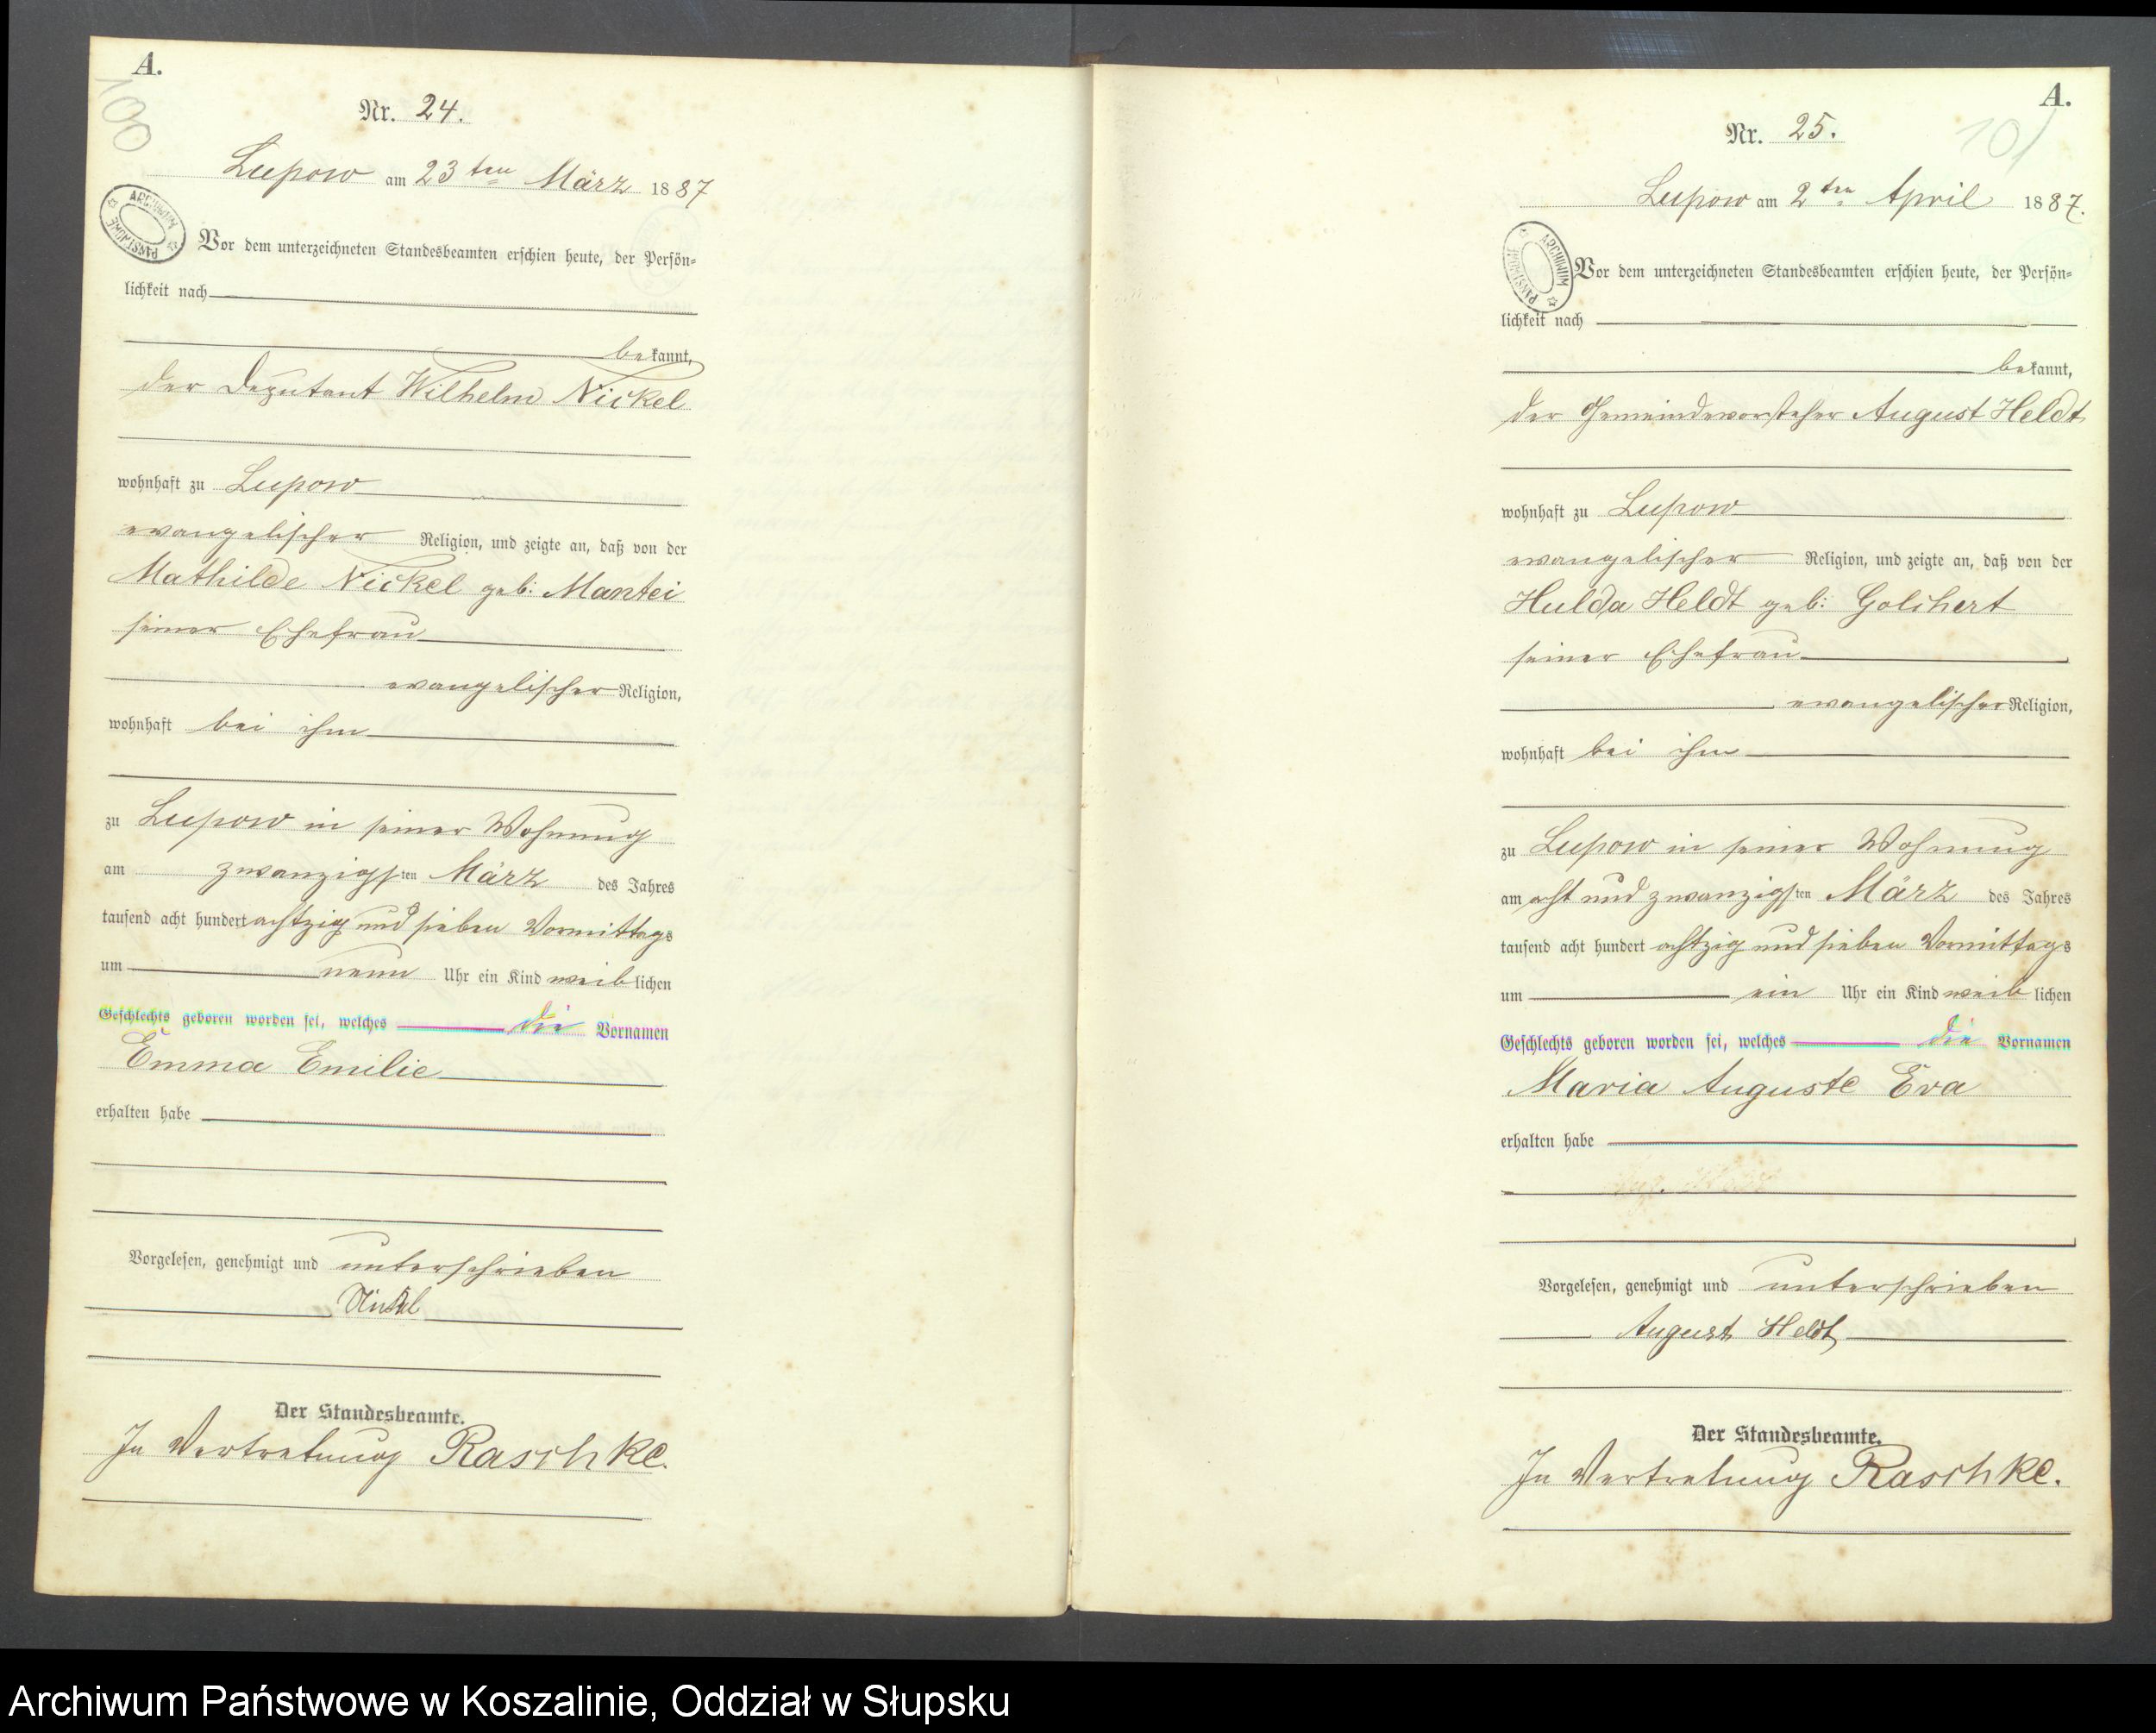 A.
100
Nr. 24.
Lupow am 23ten März 1887
ARCHIWUM PAŃSTWOWE
Vor dem unterzeichneten Standesbeamten erschien heute, der Persön-
lichkeit nach
bekannt,
der Deputant Wilhelm Nickel
wohnhaft zu Lupow
evangelischer Religion, und zeigte an, daß von der
Mathilde Nickel geb: Mantei
seiner Ehefrau
evangelischer Religion,
wohnhaft bei ihm
zu Lupow in seiner Wohnung
am zwanzigsten März des Jahres
tausend acht hundert achtzig und sieben Vormittags
um neun Uhr ein Kind weiblichen
Geschlechts geboren worden sei, welches die Vornamen
Emma Emilie
erhalten habe
Vorgelesen, genehmigt und unterschrieben
Nickel
Der Standesbeamte.
In Vertretung Raschke.
A.
101
Nr. 25.
Lupow am 2ten April 1887.
ARCHIWUM PAŃSTWOWE
Vor dem unterzeichneten Standesbeamten erschien heute, der Persön-
lichkeit nach
bekannt,
der Gemeindevorsteher August Heldt
wohnhaft zu Lupow
evangelischer Religion, und zeigte an, daß von der
Hulda Heldt geb: Golchert
seiner Ehefrau
evangelischer Religion,
wohnhaft bei ihm
zu Lupow in seiner Wohnung
am acht und zwanzigsten März des Jahres
tausend acht hundert achtzig und sieben Vormittags
um ein Uhr ein Kind weiblichen
Geschlechts geboren worden sei, welches die Vornamen
Maria Auguste Eva
erhalten habe
Vorgelesen, genehmigt und unterschrieben
August Heldt
Der Standesbeamte.
In Vertretung Raschke.
Archiwum Państwowe w Koszalinie, Oddział w Słupsku